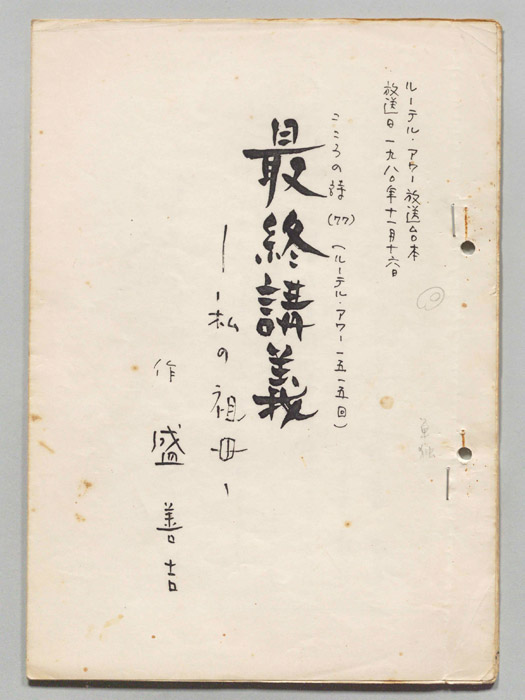 ルーテル・アワー放送台本
放送日一九八〇年十一月十六日
こころの詩(77)(ルーテル・アワー一五一五回)
最終講義
—私の祖母—
作 盛善吉